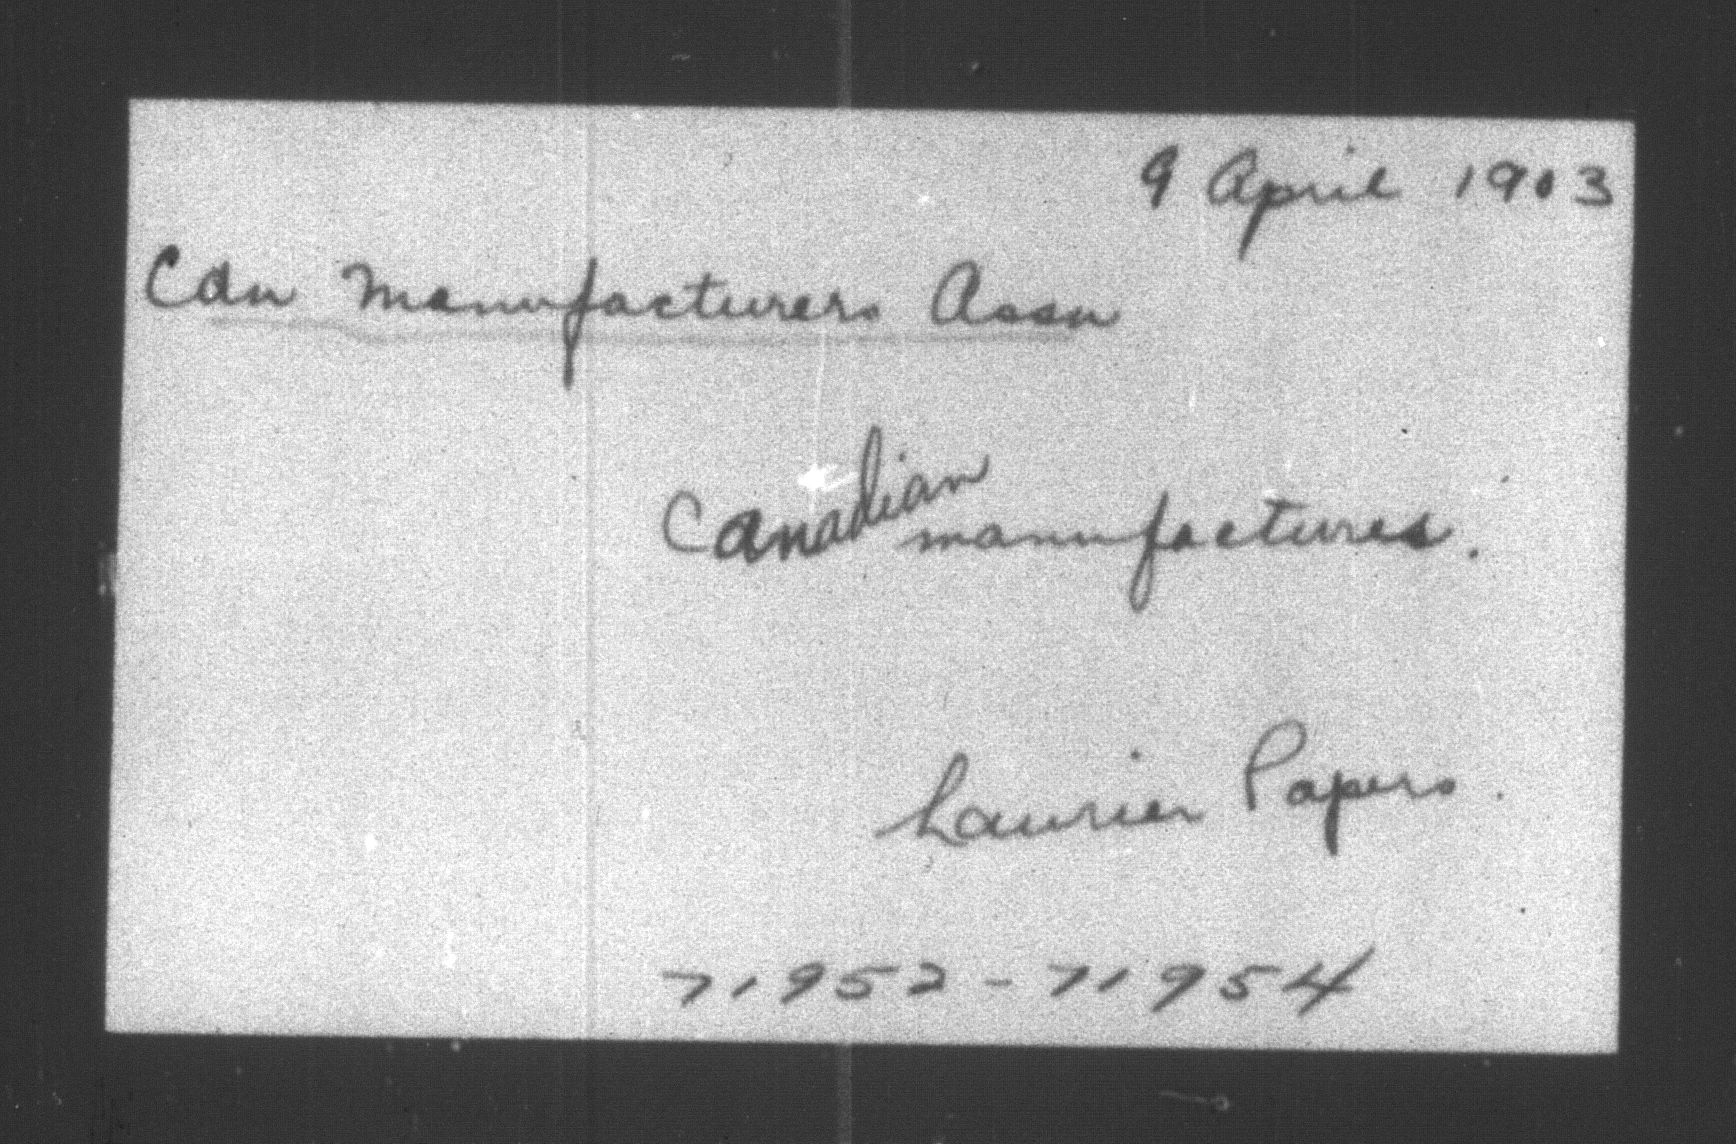 9 April 1903
Cdn Manufacturers Assn
Canadian manufactures.
Laurier Papers.
71952-71954